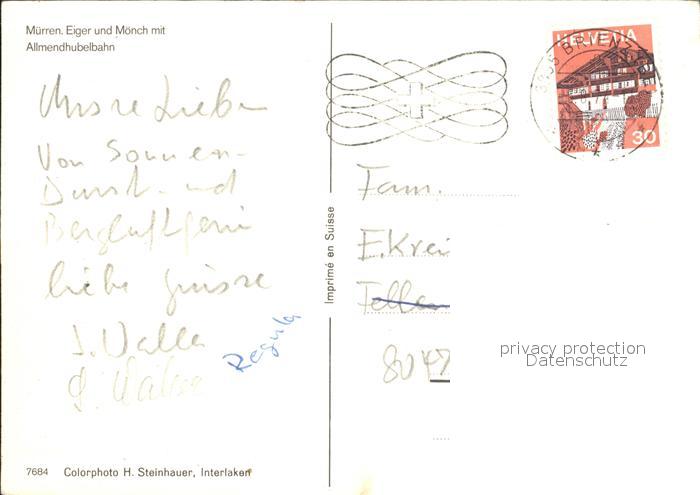 Mürren. Eiger und Mönch mit
Allmendhubelbahn
Unsre Lieben
Von Sonnen-
Dunst- und
liebe Grüsse
Regula
7684 Colorphoto H. Steinhauer, Interlaken
Imprimé en Suisse
HELVETIA
30
BRIENZ
Fam.
E. Krei
8047
privacy protection
Datenschutz